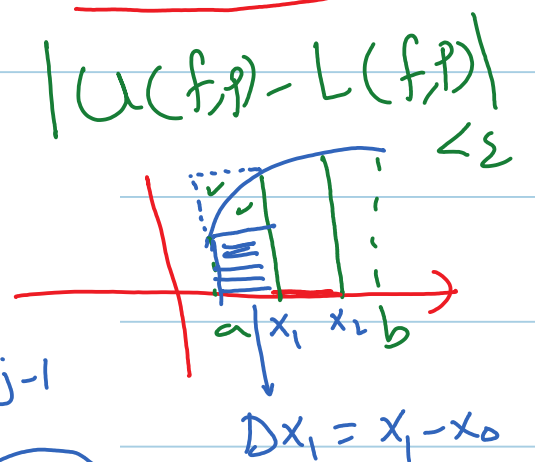 |U(f,p) - L(f,p)|
< ε
a x₁ x₂ b
j-1
Dx₁ = x₁ - x₀